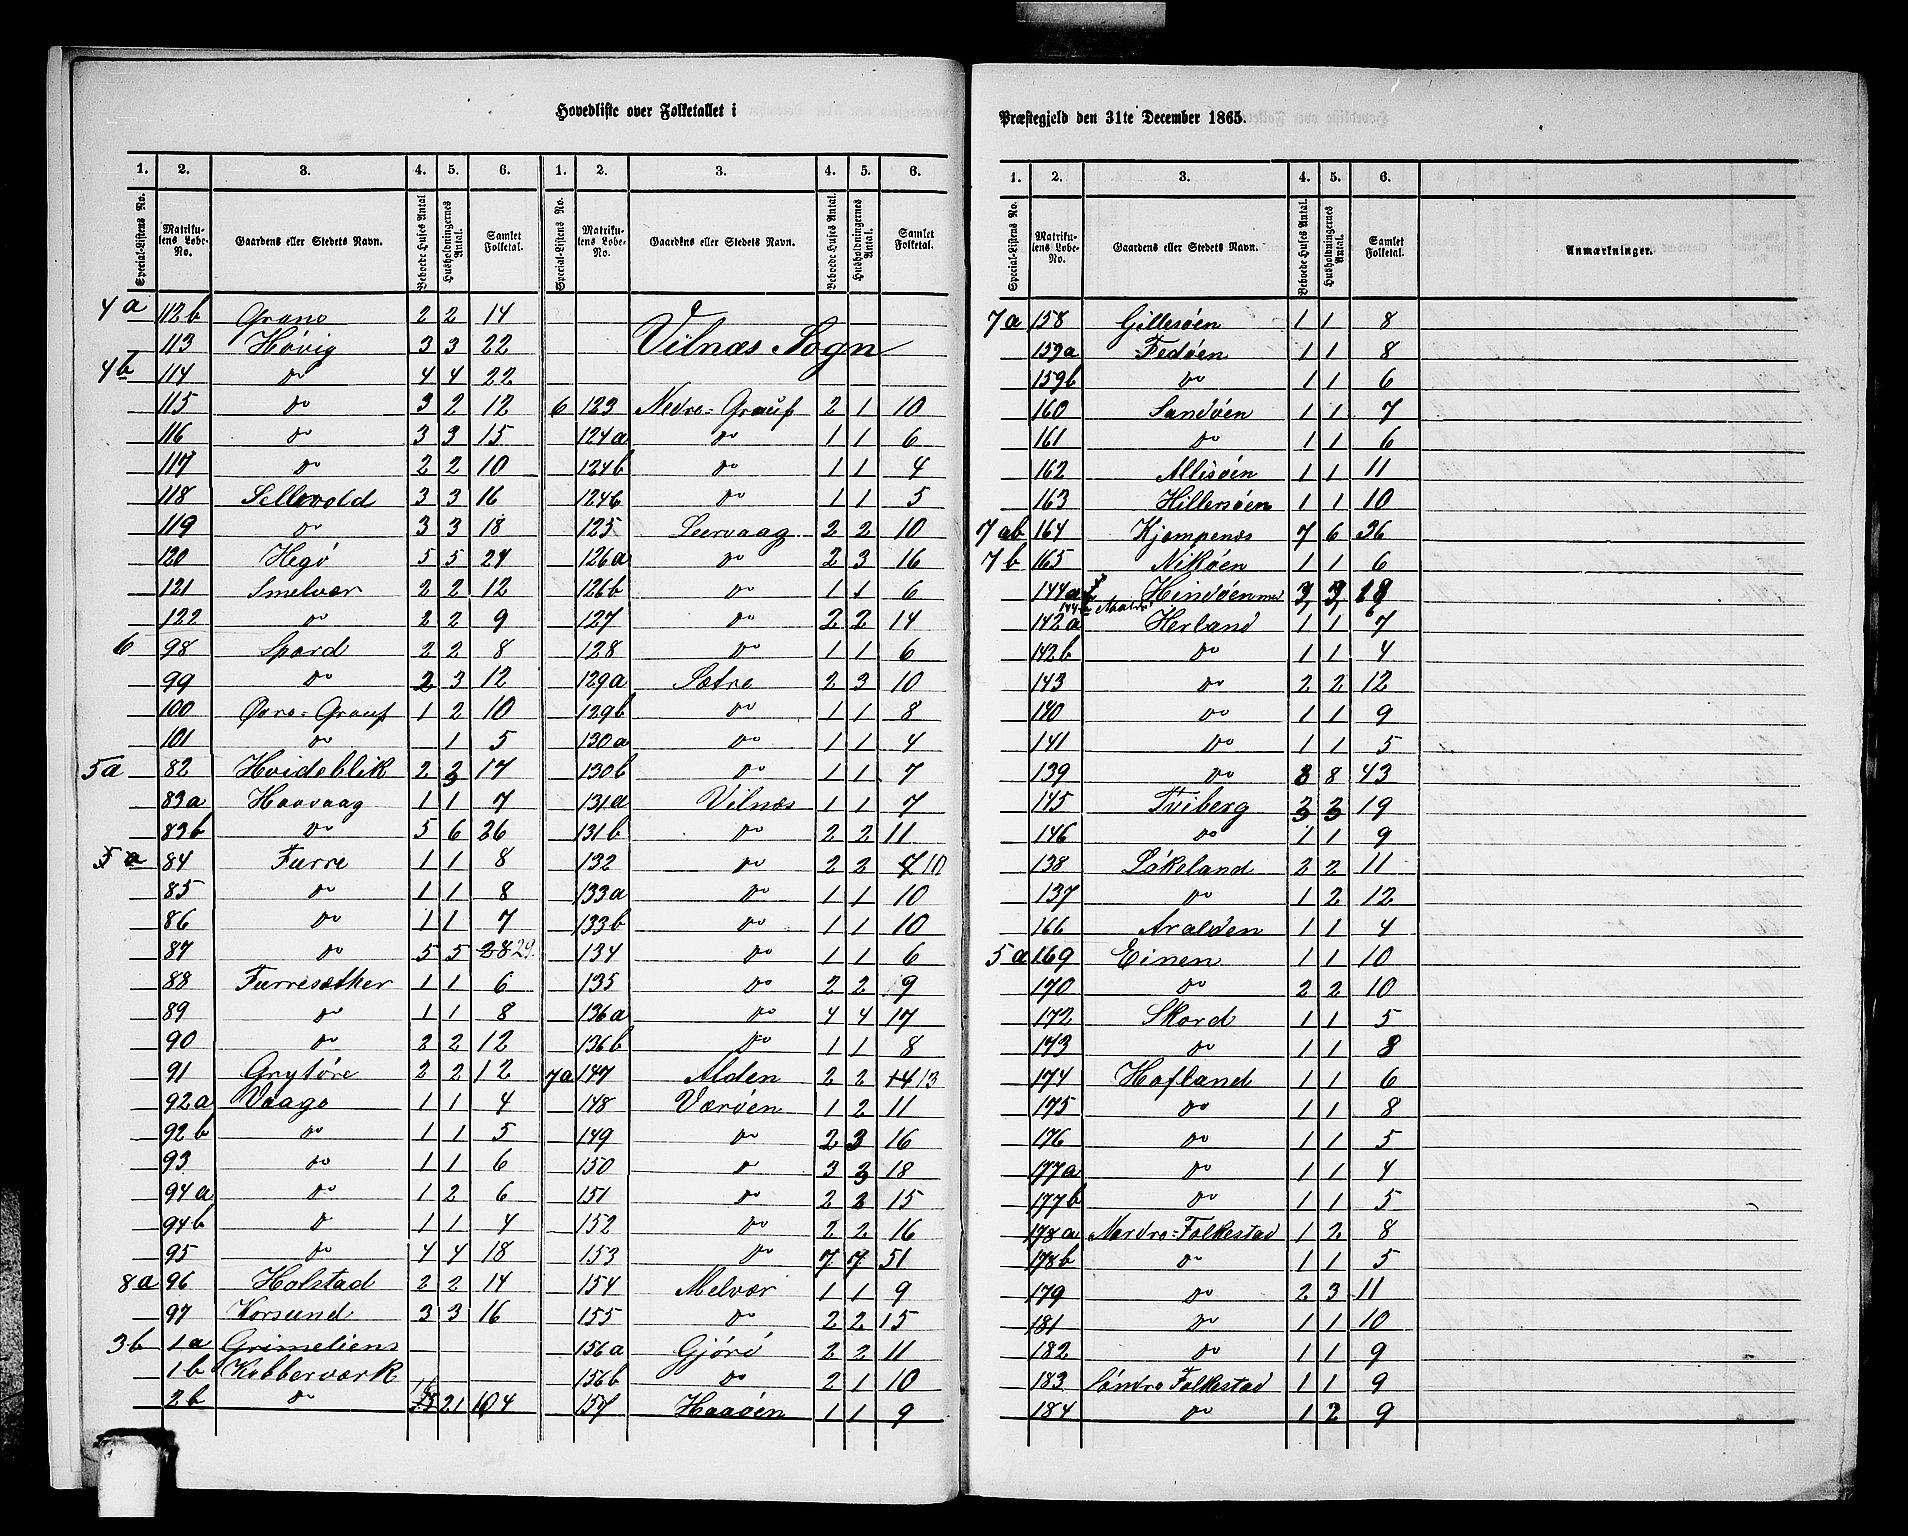 Hovedliste over Folketallet i
1. 2. 3. 4. 5. 6. 1. 2. 3. 4. 5. 6.
Special-Listens No. Matrikulens Løbe-No. Gaardens eller Stedets Navn. Beboede Huses Antal Husholdningernes Antal. Samlet Folketal. Special-Listens No. Matrikulens Løbe-No. Gaardens eller Stedets Navn. Beboede Huses Antal. Husholdningernes Antal. Samlet Folketal.
4a 112b Grane 2 2 14
113 Høvig 3 3 22
4b 114 do 4 4 22
115 do 3 2 12
116 do 3 3 15
117 do 2 2 10
118 Sellevold 3 3 16
119 do 3 3 18
120 Hegø 5 5 24
121 Smelvær 2 2 12
122 do 2 2 9
6 98 Spord 2 2 8
99 do 2 3 12
100 Øvre-Grauf 1 2 10
101 do 1 5
5a 82 Hvideblik 2 3 17
83a Haavaag 1 1 7
83b do 5 6 26
5a 84 Furre 1 1 8
85 do 1 1 8
86 do 1 1 7
87 do 5 5 28 29.
88 Furresæther 1 1 6
89 do 1 1 8
90 do 2 2 12
91 Grytøre 2 2 12
92a Vaago 1 1 4
92b do 1 1 5
93 do 1 1 6
94a do 1 2 6
94b do 1 1 4
95 do 4 4 18
8a 96 Holstad 2 2 14
97 Korsund 3 3 16
3b 1a Grimeliens
1b Kobberværk
2b do 21 104
Vilnæs Sogn
6 123 Nedre-Grauf 2 1 10
124a do 1 1 6
124b do 1 1 4
124b do 1 1 5
125 Leervaag 2 2 10
126a do 2 3 16
126b do 1 1 6
127 do 2 2 14
128 do 1 1 6
129a Sætre 2 3 10
129b do 1 1 8
130a do 1 1 4
130b do 1 1 7
131a Vilnæs 1 1 7
131b do 2 2 11
132 do 2 2 7 10
133a do 1 1 10
133b do 1 1 10
134 do 1 1 6
135 do 2 2 9
136a do 4 4 17
136b do 1 1 8
7a 147 Alden 2 2 14 13
148 Værøen 1 2 11
149 do 2 3 16
150 do 3 3 18
151 do 2 2 15
152 do 2 2 16
153 do 7 7 51
154 Melvær 1 1 9
155 do 2 2 15
156a Gjørø 2 2 11
156b do 2 1 10
157 Haaøen 1 1 9
Præstegjeld den 31te December 1865.
1. 2. 3. 4. 5. 6.
Special-Listens No. Matrikulens Løbe-No. Gaardens eller Stedets Navn. Beboede Huses Antal. Husholdningernes Antal. Samlet Folketal. Anmærkninger.
7a 158 Gillesøen 1 1 8
159a Fedøen 1 1 8
159b do 1 1 6
160 Sandøen 1 1 7
161 do 1 1 6
162 Allisøen 1 1 11
163 Hillersøen 1 1 10
7ab 164 Kjempenæs 7 6 36
7b 165 Nikøen 1 1 6
144a Hindøen med 3 3 18
142a Herland 1 1 7
142b do 1 1 4
143 do 2 2 12
140 do 1 1 9
141 do 1 1 5
139 do 8 8 43
145 Tviberg 3 3 19
146 do 1 1 9
138 Løkeland 2 2 11
137 do 1 2 12
166 Aralden 1 1 4
5a 169 Einen 1 1 10
170 do 2 2 10
172 Skord 1 1 5
173 do 1 1 8
174 Hofland 1 1 6
175 do 1 1 8
176 do 1 1 5
177a do 1 1 4
177b do 1 1 5
178a Nordre-Folkestad 1 2 8
178b do 1 1 5
179 do 2 3 11
181 do 1 1 10
182 do 1 1 9
183 Søndre Folkestad 1 1 9
184 do 1 2 9